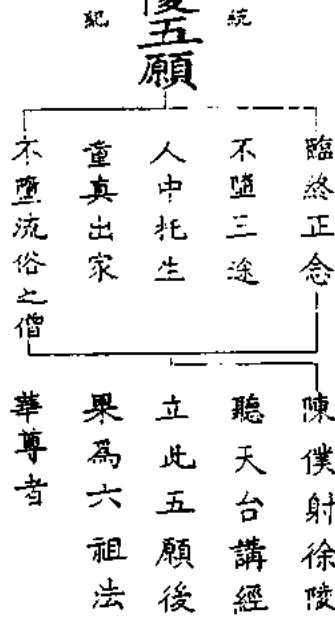 統
陵五願
紀
臨終正念
不墮三途
人中托生
童真出家
不墮流俗之僧
陳僕射徐陵
聽天台講經
立此五願後
果為六祖法
華尊者